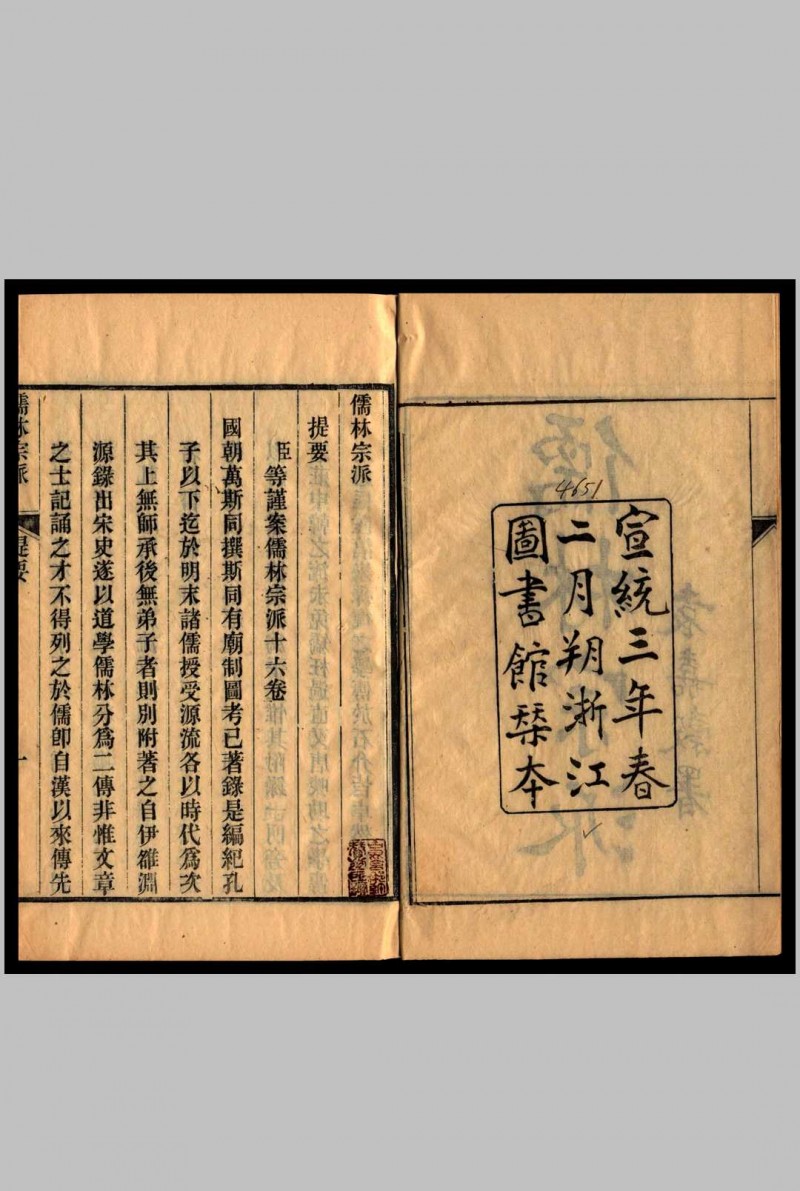 宣統三年春
二月朔浙江
圖書館栞本
4651
儒林宗派
提要
臣等謹案儒林宗派十六卷
國朝萬斯同撰斯同有廟制圖考已著錄是編紀孔
子以下迄於明末諸儒授受源流各以時代爲次
其上無師承後無弟子者則別附著之自伊雒淵
源錄出宋史遂以道學儒林分爲二傳非惟文章
之士記誦之才不得列之於儒卽自漢以來傳先
儒林宗派
提要
一